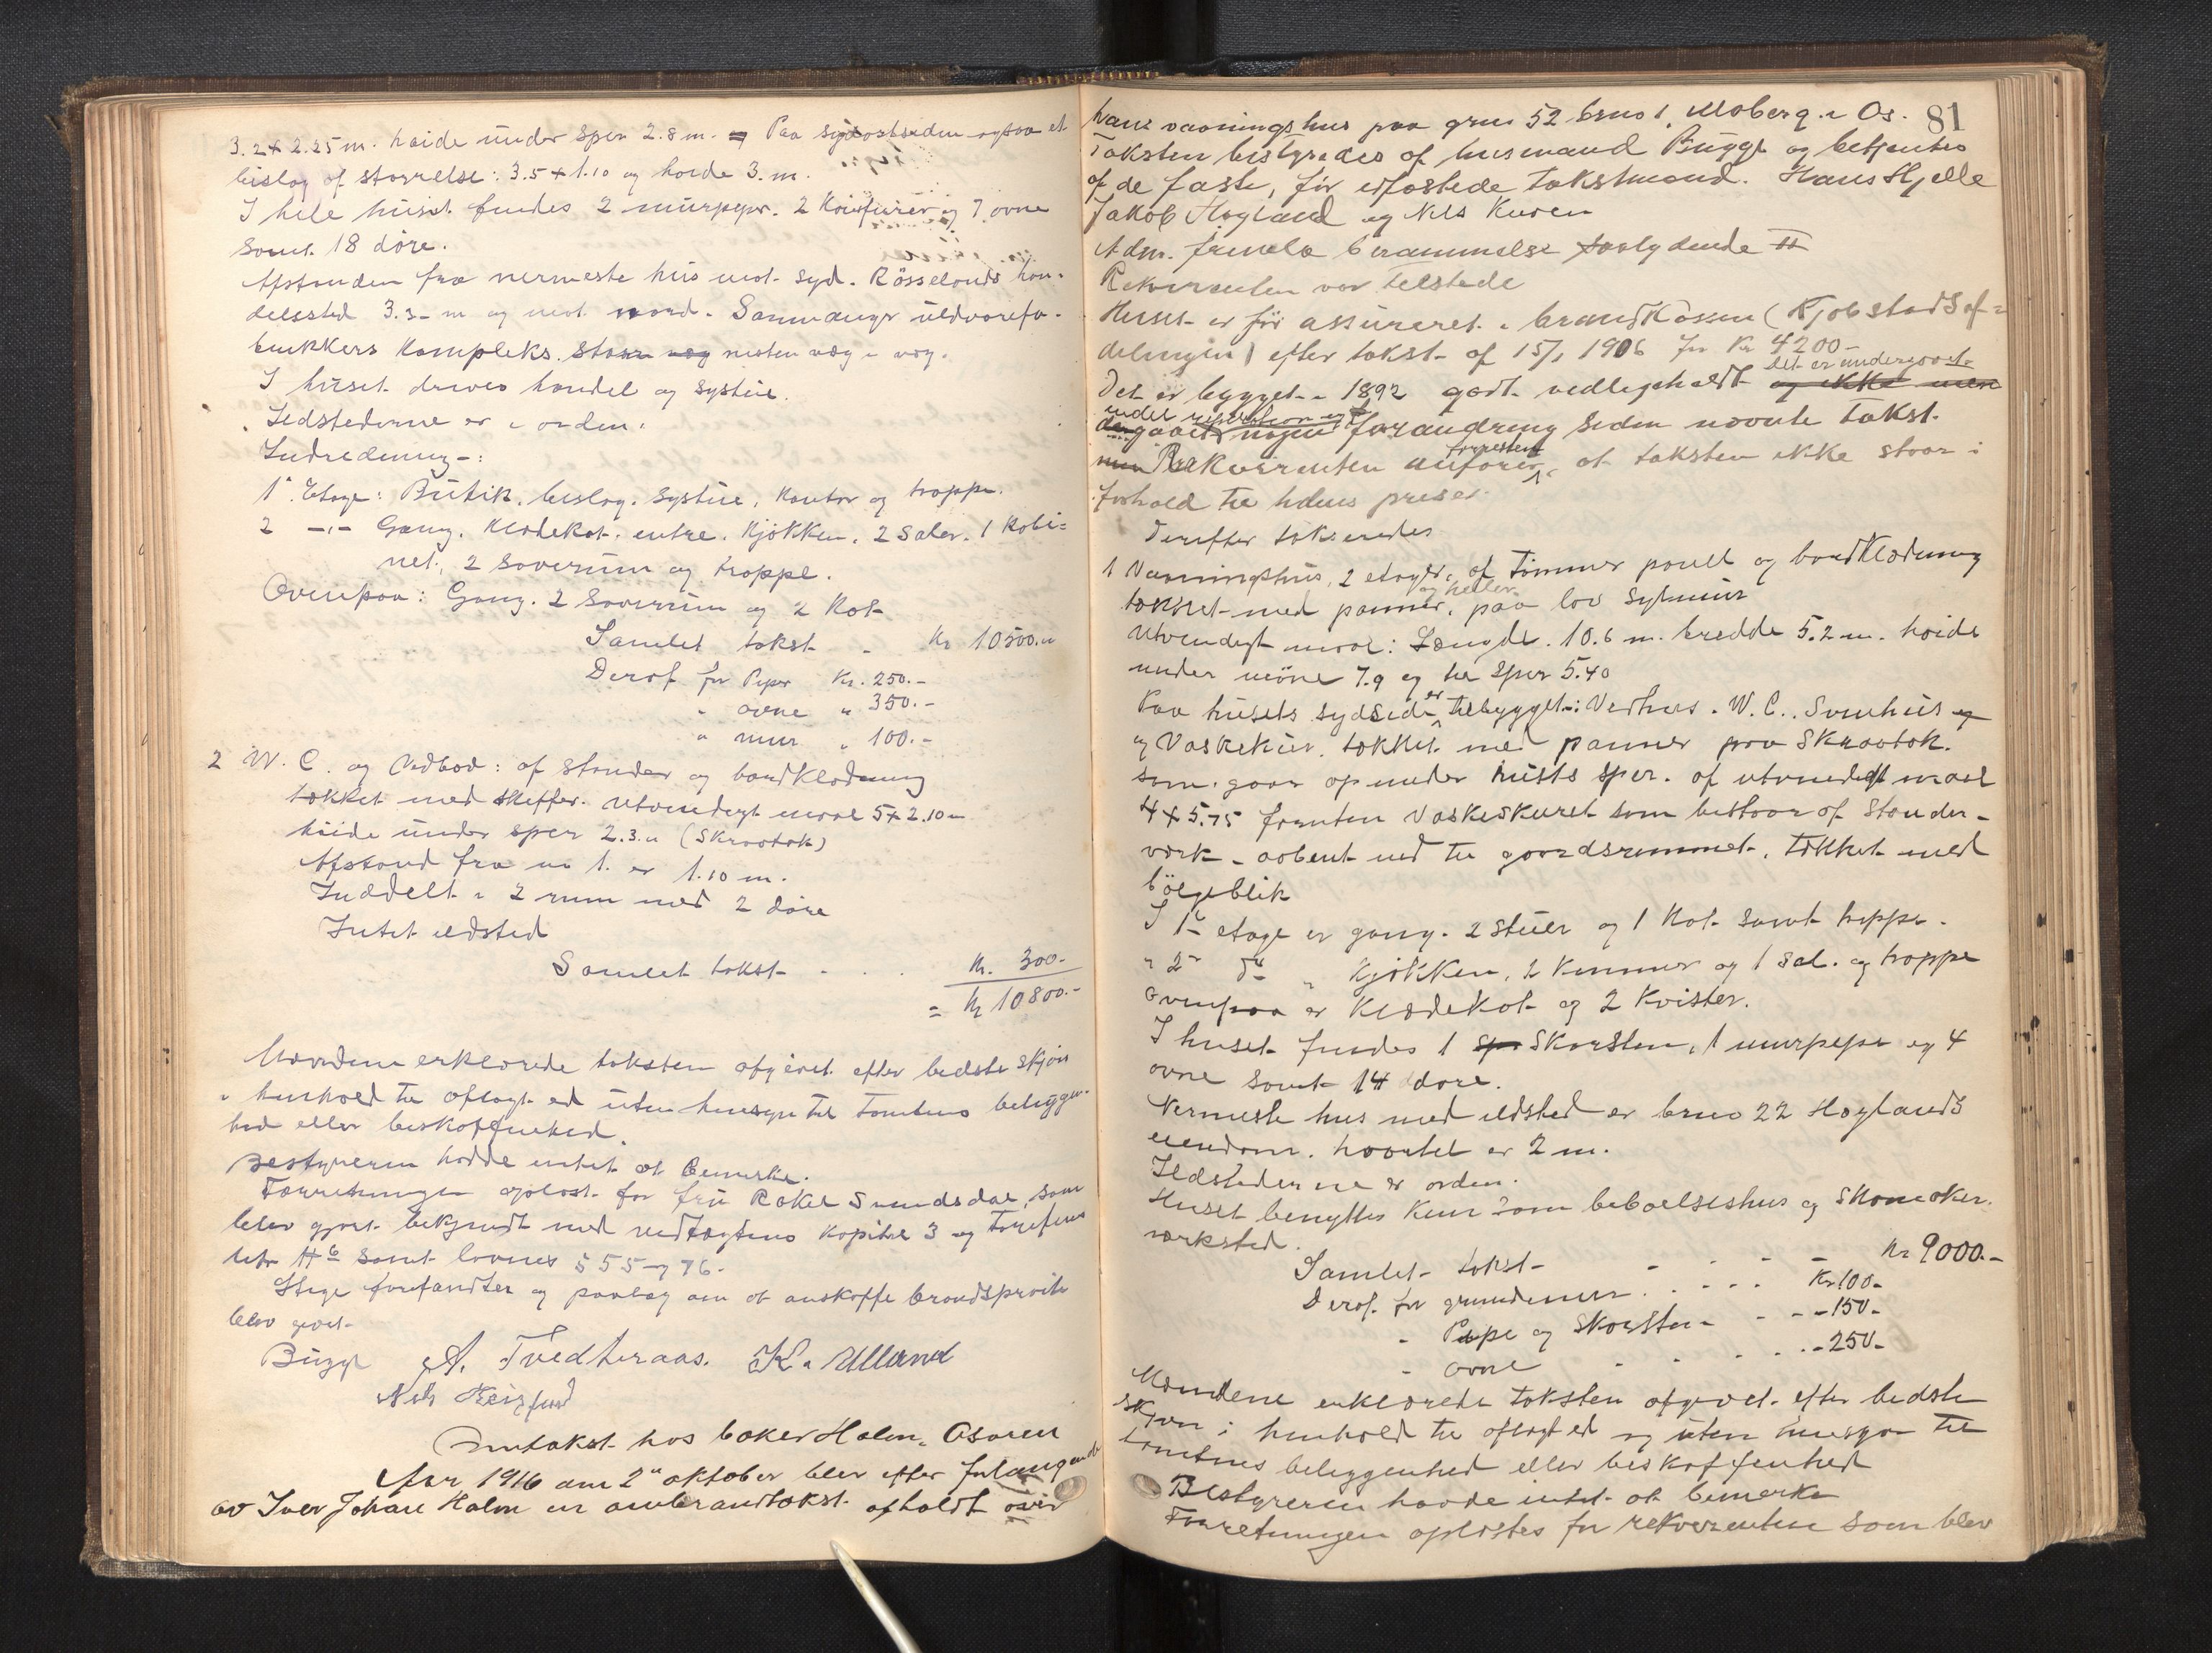 3.2 x 2.25 m. høide under sper 2.8 m. Paa sydostsiden ogsaa et
bislag af størrelse: 3.5 x 1.10 og høide 3. m.
I hele huset findes 2 murpiper. 2 Komfurer og 7 ovne
samt 18 døre.
Afstanden fra nermeste hus mot syd. Røsselands han-
delssted 3.3 m og mot nord. Samnanger uldvarefa-
brikkers Kompleks. nesten væg i væg.
I huset drives handel og systue.
Ildstederne er i orden.
Indredning:
1ste Etage: Butik, beslag. Systue, Kontor og trappe.
2 -"- Gang. Klædekot. entre. Kjøkken. 2 Saler. 1 Kabi=
net, 2 soverum og trappe.
Ovenpaa: Gang. 2 Soverum og 2 Kot
Samlet takst - Kr 10500.-
Deraf for Piper Kr. 250.-
" ovne " 350.-
" mur " 100.-
2 W. C. og Vedbod: af stender og bordklædning
tækket med skiffer. Utvendigt maal 5 x 2.10 m
høide under sper 2.3. m (Skraatak)
Afstand fra no 1. er 1.10 m.
Inddelt i 2 rum med 2 døre
Intet ildsted
Samlet takst - . . Kr. 300.-
= Kr 10800.-
Mændene erklærede taksten afgivet efter bedste skjøn
i henhold til aflagt ed uten hensyn til Tomtens beliggen-
hed eller beskaffenhed.
Bestyreren hadde intet at bemerke.
Forretningen oplæst for fru Rakel Sundsdal, som
blev gjort bekjendt med vedtægtens kapitel 3 og tariffens
litr H6 samt lovens § 55 og 76.
Stige forefandtes og paalæg om at anskaffe brandsprøite
blev givet.
Bügge A. Tvedteraas. K. Ulland
Nils
Omtakst hos baker Holm. Osøren
Aar 1916 den 2den oktober blev efter forlangende
av Iver Johan Holm en ombrandtakst afholdt over
81
hans vaaningshus paa gno 52 brno 1, Moberg i Os.
Taksten bestyredes af lensmand Bügge og betjentes
af de faste, før edfæstede takstmænd. Hans Hjelle
Jakob Høyland og Nils Kuven
Adm. fremla berammelse saalydende
Rekvirenten var tilstede
Huset er før assureret i brandkassen (Kjøbstadsaf=
delingen) efter takst af 15/1 1906 for Kr 4200-
det er undergaat
Det er bygget i 1892 godt vedligeholdt og ikke
endel reparation og
nogen forandring siden nævnte takst.
forresten
Rekvirenten anfører, at taksten ikke staar i
forhold til tidens priser.
Derefter takseredes
1 Vaaningshus, 2 etager, af tømmer panelt og bordklædning
og keller
tækket med panner, paa lav Sylmur
Utvendigt maal: Længde. 10.6 m. bredde 5.2 m. høide
under møne 7.9 og til sper 5.40
Paa husets sydside er tilbygget: Vedhus. W. C.. Svinehus
og Vaskeskur. tækket med panner paa Skraatak.
som gaar op under husets sper. af utvendigt maal
4 x 5.75 foruten Vaskeskuret som bestaar af stender-
værk - aabent ind til gaardsrummet, tækket med
bølgeblik
I 1ste etage er gang. 2 stuer og 1 Kot samt trappe.
" 2den do " Kjøkken, 2 Kammer og 1 Sal. og trappe
Ovenpaa er Klædekot og 2 Kvister.
I huset findes 1 Skorsten, 1 murpipe og 4
ovne samt 14 døre.
Nermeste hus med ildsted er brno 22 Høylands
eiendom. hvortil er 2 m.
Ildstederne er i orden.
Huset benyttes Kun som beboelseshus og Skomaker
verksted.
Samlet takst - - - Kr 9000.-
Deraf for grundmur . . . . Kr 100-
" Pipe og Skorsten - - 150-
" Ovne . . . - 250-
Mændene erklærede taksten afgivet efter bedste
skjøn i henhold til aflagt ed og uten hensyn til
tomtens beliggenhed eller beskaffenhed
Bestyreren havde intet at bemerke
Forretningen oplæstes for rekvirenten som blev